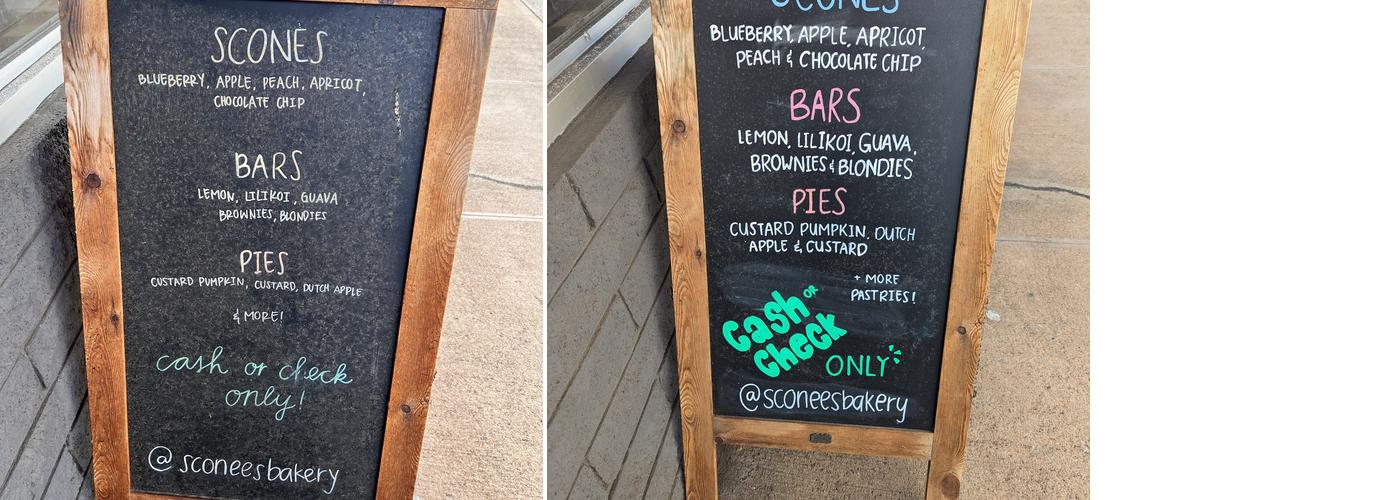 SCONES
BLUEBERRY, APPLE, PEACH, APRICOT,
CHOCOLATE CHIP
BARS
LEMON, LILIKOI, GUAVA
BROWNIES, BLONDIES
PIES
CUSTARD PUMPKIN, CUSTARD, DUTCH APPLE
& MORE!
cash or check
only!
@sconeesbakery
SCONES
BLUEBERRY, APPLE, APRICOT,
PEACH & CHOCOLATE CHIP
BARS
LEMON, LILIKOI, GUAVA,
BROWNIES & BLONDIES
PIES
CUSTARD PUMPKIN, DUTCH
APPLE & CUSTARD
+ MORE
PASTRIES!
Cash OR
Check
ONLY
@sconeesbakery